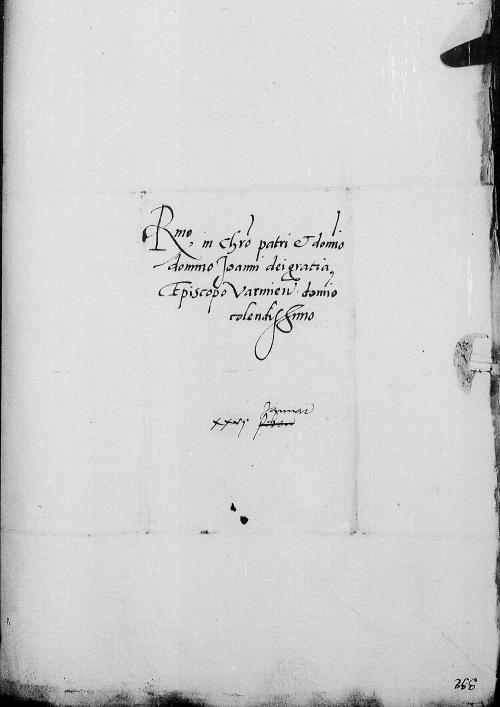 Rmo, in Chro patri et domio
domino Joanni dei gratia
Episcopo Varmien. domio
colendissimo
Januar
xxvj
266